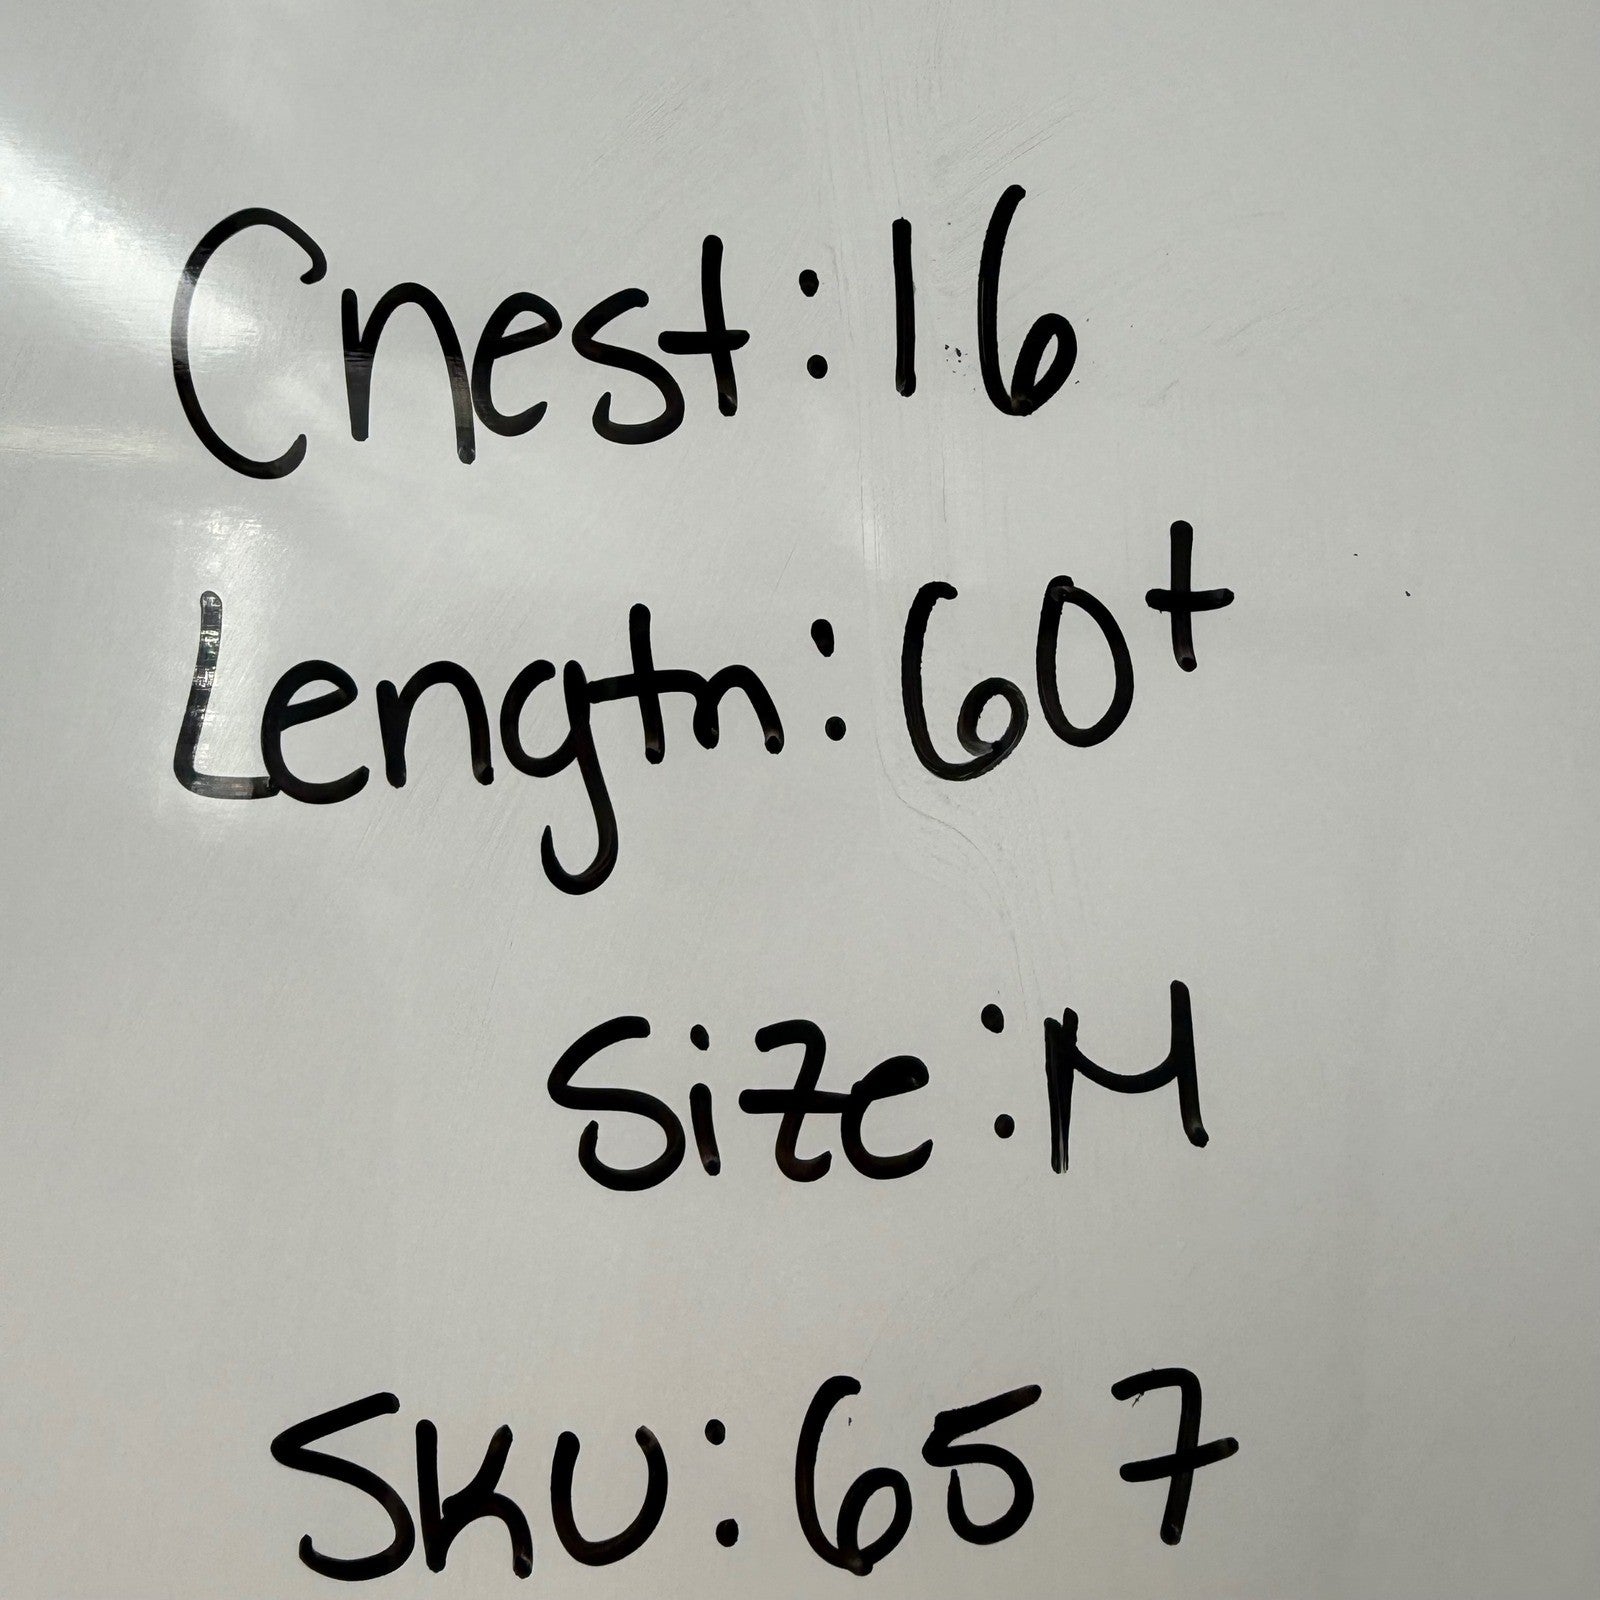 Chest: 16
Length: 60+
Size: M
SKU: 657